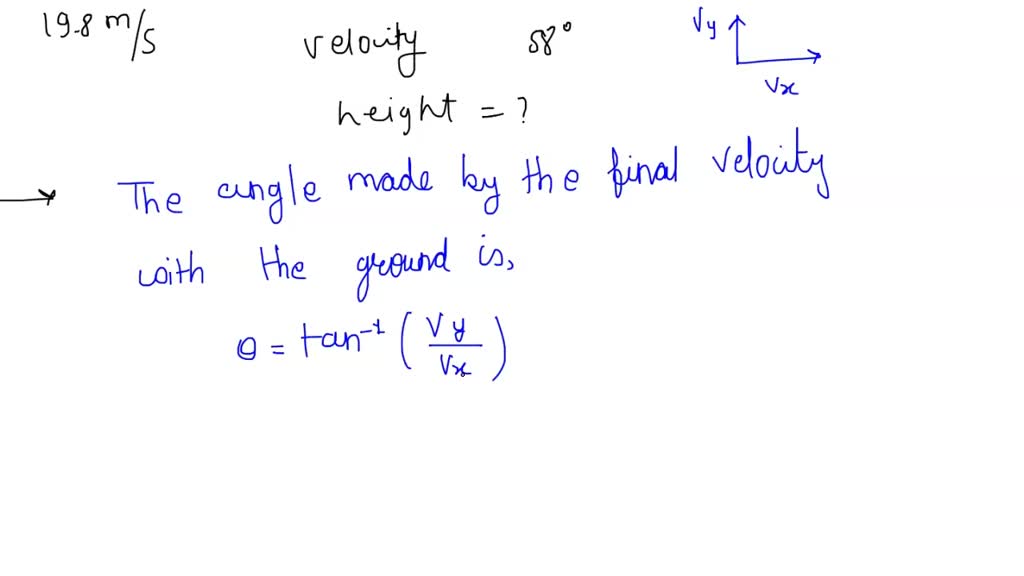 19.8 m/s velocity 58° Vy
Vx
height = ?
The angle made by the final velocity
with the ground is,
θ = tan⁻¹ (Vy/Vx)